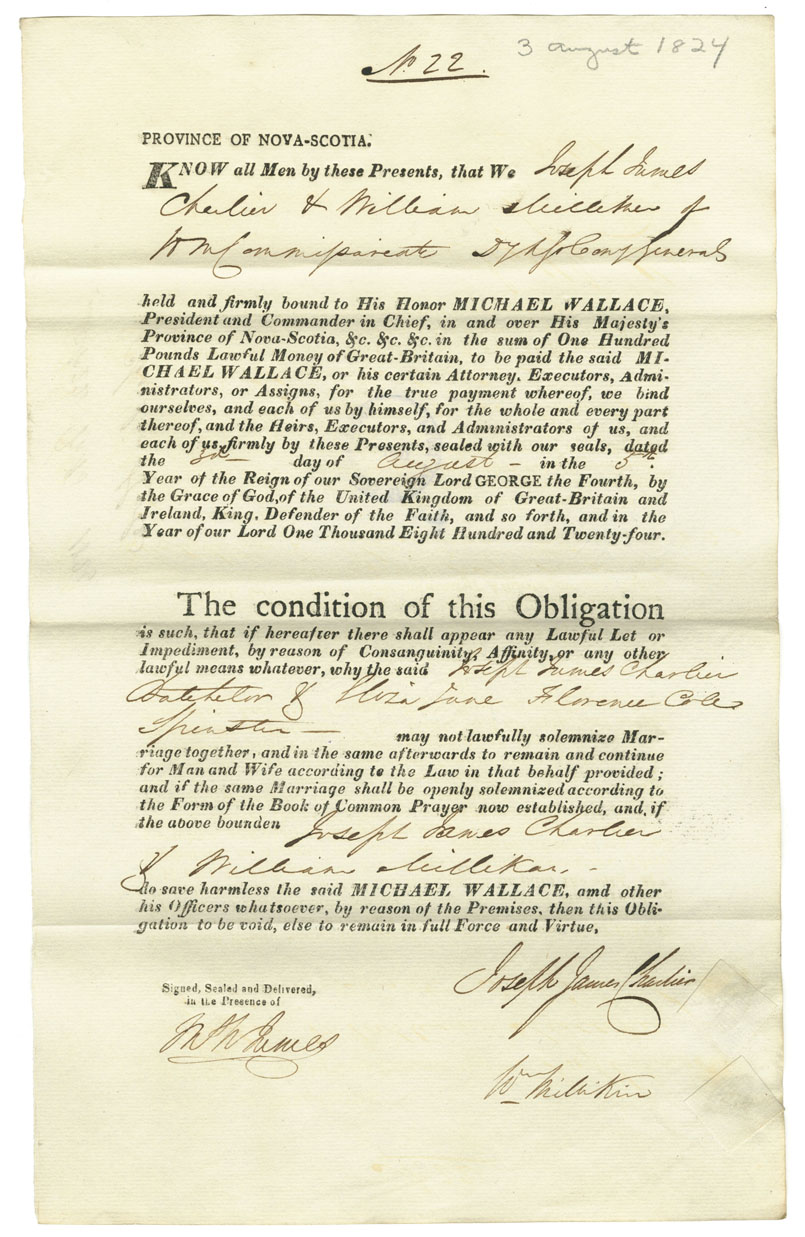 3 august 1824
No. 22.
PROVINCE OF NOVA-SCOTIA.
KNOW all Men by these Presents, that We Joseph James
Charlier & William Milliken of
General
held and firmly bound to His Honor MICHAEL WALLACE,
President and Commander in Chief, in and over His Majesty's
Province of Nova-Scotia, &c. &c. &c. in the sum of One Hundred
Pounds Lawful Money of Great-Britain, to be paid the said MI-
CHAEL WALLACE, or his certain Attorney. Executors, Admi-
nistrators, or Assigns, for the true payment whereof, we bind
ourselves, and each of us by himself, for the whole and every part
thereof, and the Heirs, Executors, and Administrators of us, and
each of us, firmly by these Presents, sealed with our seals, dated
the 3rd day of August – in the 5th.
Year of the Reign of our Sovereign Lord GEORGE the Fourth, by
the Grace of God, of the United Kingdom of Great-Britain and
Ireland, King, Defender of the Faith, and so forth, and in the
Year of our Lord One Thousand Eight Hundred and Twenty-four.
The condition of this Obligation
is such, that if hereafter there shall appear any Lawful Let or
Impediment, by reason of Consanguinity, Affinity, or any other
lawful means whatever, why the said Joseph James Charlier
Batchelor & Eliza Jane Florence Cole
Spinster — may not lawfully solemnize Mar-
riage together, and in the same afterwards to remain and continue
for Man and Wife according to the Law in that behalf provided;
and if the same Marriage shall be openly solemnized according to
the Form of the Book of Common Prayer now established, and, if
the above bounden Joseph James Charlier
& William Milliken. –
do save harmless the said MICHAEL WALLACE, amd other
his Officers whatsoever, by reason of the Premises, then this Obli-
gation to be void, else to remain in full Force and Virtue,
Joseph James Charlier
Signed, Sealed and Delivered,
in the Presence of
James
Wm Millikin